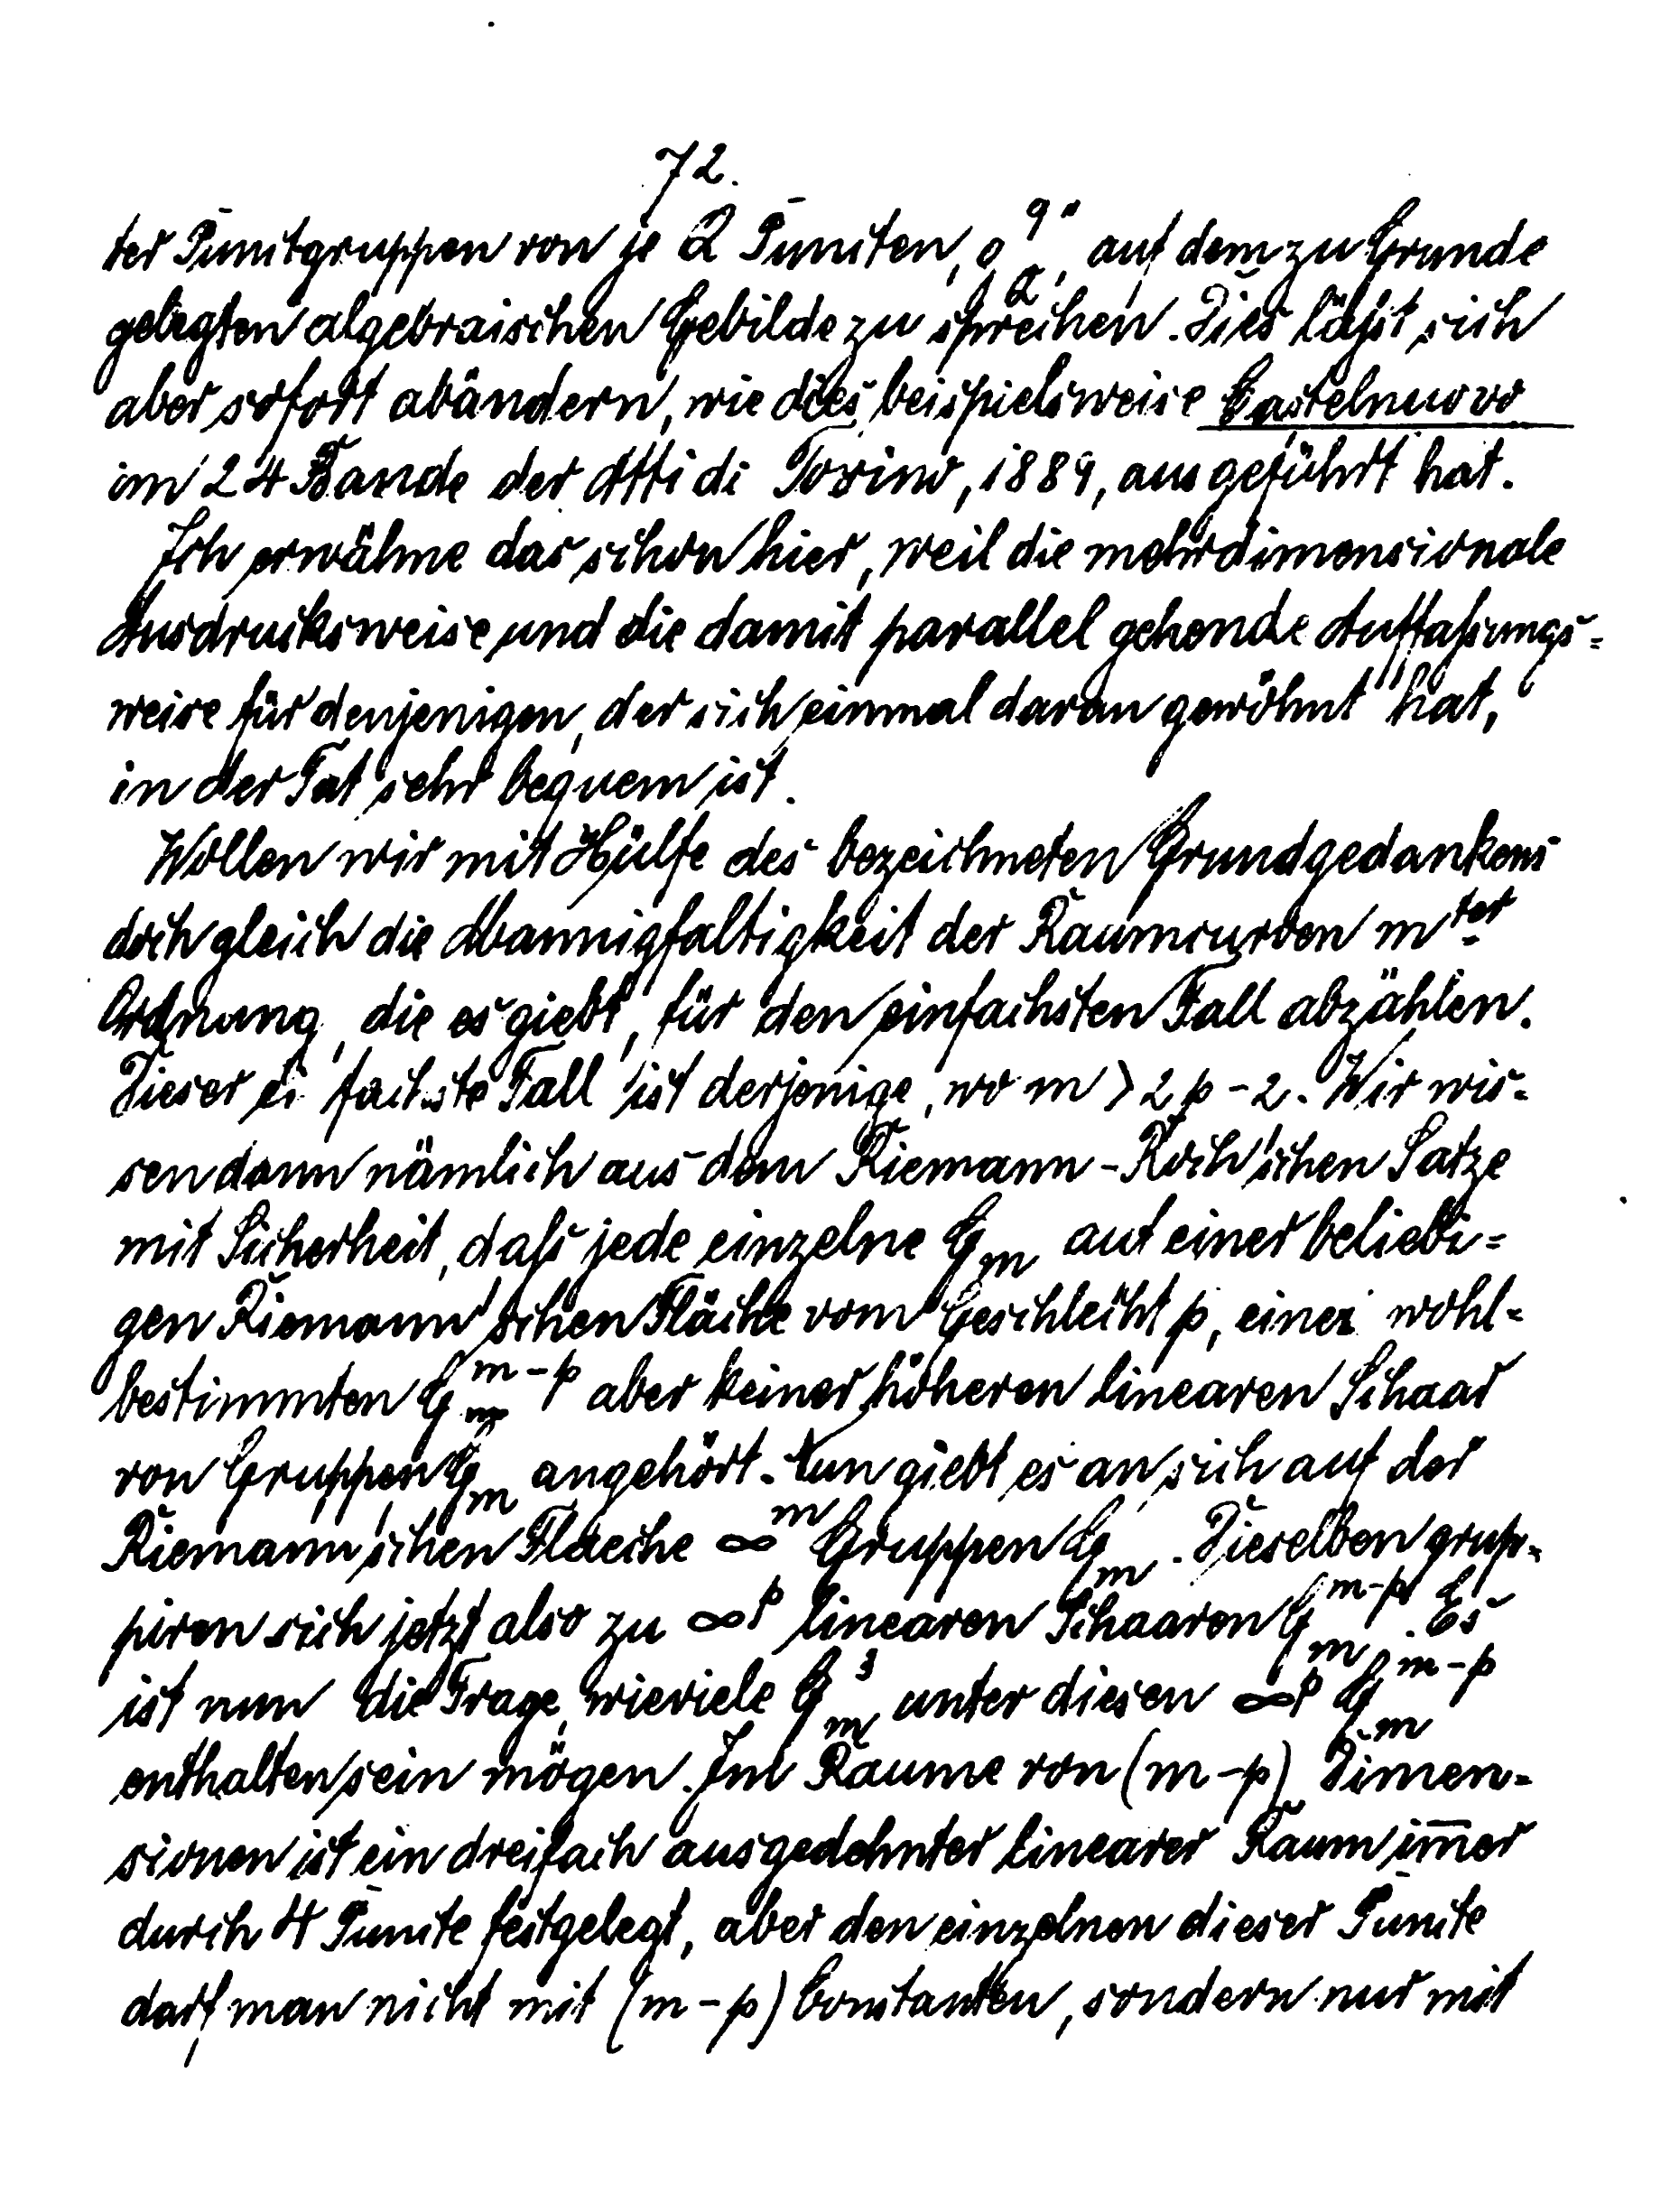 72.
ter Punctgruppen von je Q Puncten, g_Q^q", auf dem zu Grunde
gelegten algebraischen Gebilde zu sprechen. Dies läßt sich
aber sofort abändern, wie dies beispielsweise Castelnuovo
im 24 Bande der Atti di Torino, 1889, ausgeführt hat.
Ich erwähne das schon hier, weil die mehrdimensionale
Ausdrucksweise und die damit parallel gehende Auffaßungs=
weise für denjenigen, der sich einmal daran gewöhnt hat,
in der Tat sehr bequem ist.
Wollen wir mit Hülfe des bezeichneten Grundgedankens
doch gleich die Mannigfaltigkeit der Raumcurven m^ter
Ordnung, die es giebt, für den einfachsten Fall abzählen.
Dieser ei fachste Fall ist derjenige, wo m > 2p-2. Wir wis=
sen dann nämlich aus dem Riemann-Roch'schen Satze
mit Sicherheit, daß jede einzelne G_m auf einer beliebi=
gen Riemann'schen Fläche vom Geschlecht p, einer wohl=
bestimmten G_m^{m-p} aber keiner höheren linearen Schaar
von Gruppen G_m angehört. Nun giebt es an sich auf der
Riemann'schen Flaeche ∞^m Gruppen G_m. Dieselben grup=
piren sich jetzt also zu ∞^p linearen Schaaren G_m^{m-p}. Es
ist nun die Frage, wieviele G_m^3 unter diesen ∞^p G_m^{m-p}
enthalten sein mögen. Im Raume von (m-p) Dimen=
sionen ist ein dreifach ausgedehnter linearer Raum im̅er
durch 4 Puncte festgelegt, aber den einzelnen dieser Puncte
darf man nicht mit (m-p) Constanten, sondern nur mit